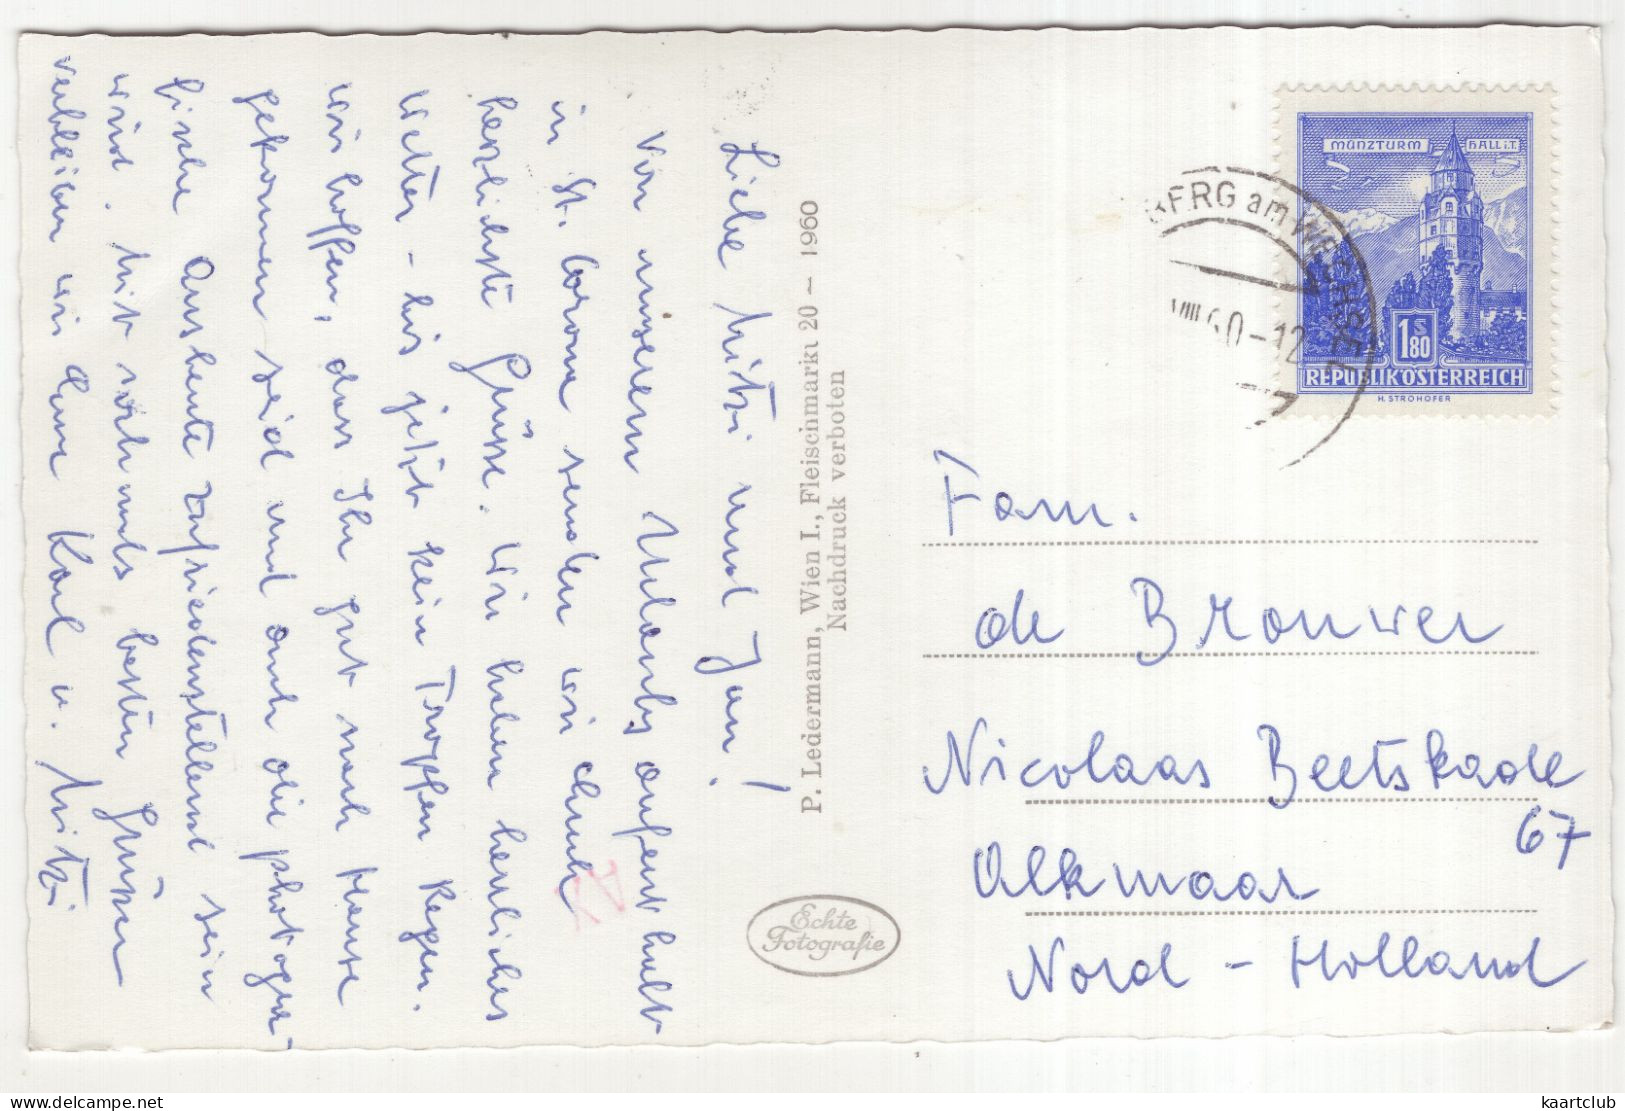 Liebe Mitzi und Jan!
Von unserem Urlaubsaufenthalt
in St. Corona senden wir euch
herzlichste Grüsse. Wir haben herrliches
Wetter - bis jetzt kein Tropfen Regen.
Wir hoffen, dass Ihr gut nach Hause
gekommen seid und auch die photogra-
fische Ausbeute zufriedenstellend sein
wird. Mit nochmals besten Grüssen
verbleiben wir Eure Karl u. Mitzi
P. Ledermann, Wien I., Fleischmarkt 20 — 1960
Nachdruck verboten
Echte
Fotografie
MÜNZTURM HALL i.T.
1 S 80
REPUBLIK ÖSTERREICH
H. STROHOFER
BERG am WECHSEL
VIII 60-12
Fam.
de Brouwer
Nicolaas Beetskade
67
Alkmaar
Nord - Holland
kaartclub